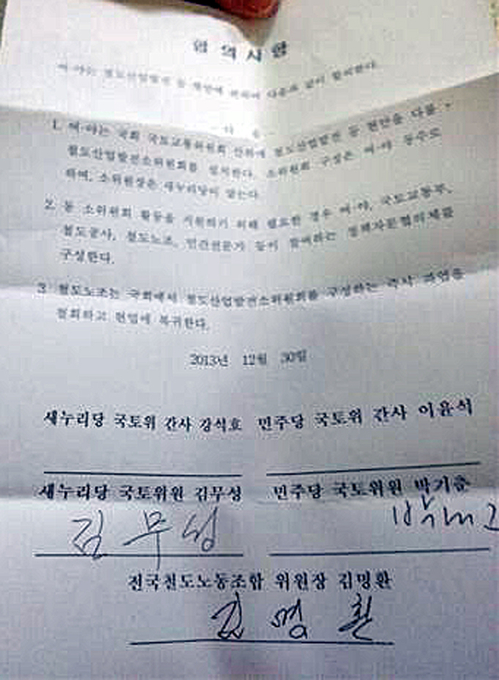 합 의 사 항
여·야는 철도산업발전 등 현안에 관하여 다음과 같이 합의한다.
- 다 음 -
1. 여·야는 국회 국토교통위원회 산하에 철도산업발전 등 현안을 다룰
철도산업발전소위원회를 설치한다. 소위원회 구성은 여·야 동수로
하며, 소위원장은 새누리당이 맡는다.
2. 동 소위원회 활동을 지원하기 위해 필요한 경우 여·야, 국토교통부,
철도공사, 철도노조, 민간전문가 등이 참여하는 정책자문협의체를
구성한다.
3. 철도노조는 국회에서 철도산업발전소위원회를 구성하는 즉시 파업을
철회하고 현업에 복귀한다.
2013년 12월 30일
새누리당 국토위 간사 강석호 민주당 국토위 간사 이윤석
새누리당 국토위원 김무성 민주당 국토위원 박기춘
김 무 성
전국철도노동조합 위원장 김명환
김 명 환